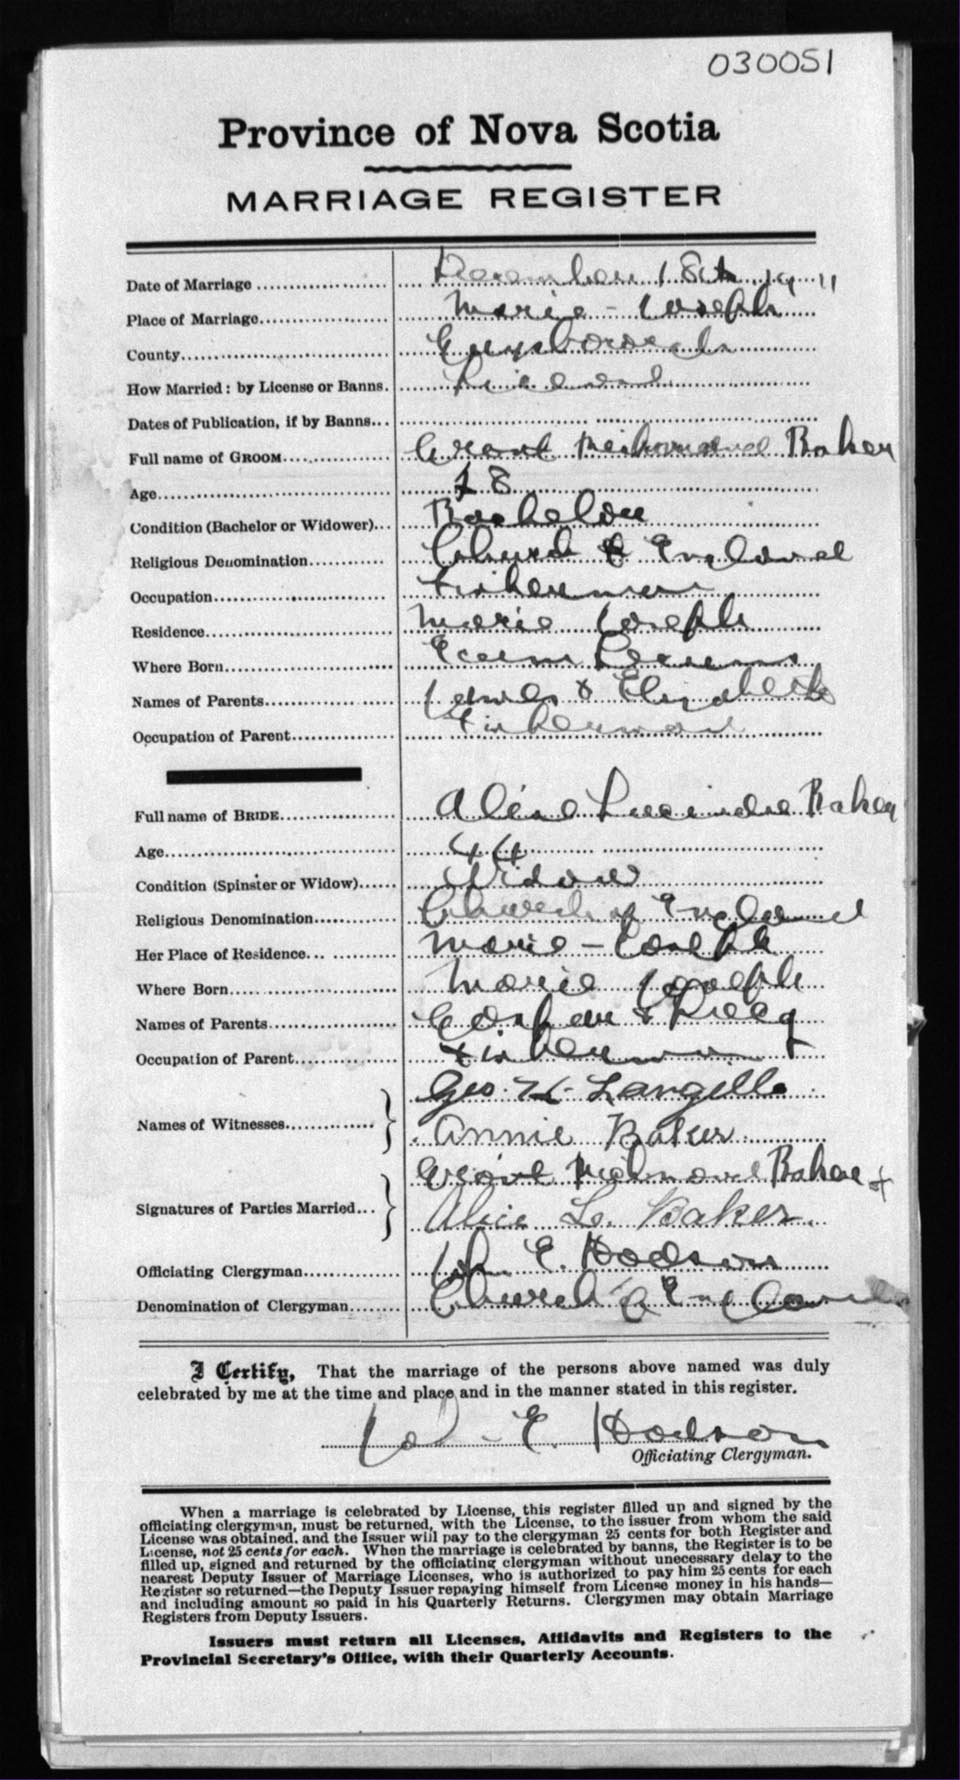 030051
Province of Nova Scotia
MARRIAGE REGISTER
Date of Marriage December 18th 1911
Place of Marriage Marie - Joseph
County Guysborough
How Married: by License or Banns. License
Dates of Publication, if by Banns
Full name of GROOM Grant Baker
Age 18
Condition (Bachelor or Widower) Bachelor
Religious Denomination Church of England
Occupation Fisherman
Residence Marie Joseph
Where Born Ecum Secum
Names of Parents James & Elizabeth
Occupation of Parent Fisherman
Full name of BRIDE Alice Lucinda Baker
Age 44
Condition (Spinster or Widow) Widow
Religious Denomination Church of England
Her Place of Residence Marie - Joseph
Where Born Marie Joseph
Names of Parents &
Occupation of Parent Fisherman
Names of Witnesses Geo. H. Langille
Annie Baker
Signatures of Parties Married Grant Baker
Alice L. Baker.
Officiating Clergyman Wm E. Hodson
Denomination of Clergyman Church of England
I Certify, That the marriage of the persons above named was duly
celebrated by me at the time and place and in the manner stated in this register.
W. E. Hodson
Officiating Clergyman.
When a marriage is celebrated by License, this register filled up and signed by the
officiating clergyman, must be returned, with the License, to the issuer from whom the said
License was obtained, and the Issuer will pay to the clergyman 25 cents for both Register and
License, not 25 cents for each. When the marriage is celebrated by banns, the Register is to be
filled up, signed and returned by the officiating clergyman without unnecessary delay to the
nearest Deputy Issuer of Marriage Licenses, who is authorized to pay him 25 cents for each
Register so returned—the Deputy Issuer repaying himself from License money in his hands—
and including amount so paid in his Quarterly Returns. Clergymen may obtain Marriage
Registers from Deputy Issuers.
Issuers must return all Licenses, Affidavits and Registers to the
Provincial Secretary's Office, with their Quarterly Accounts.